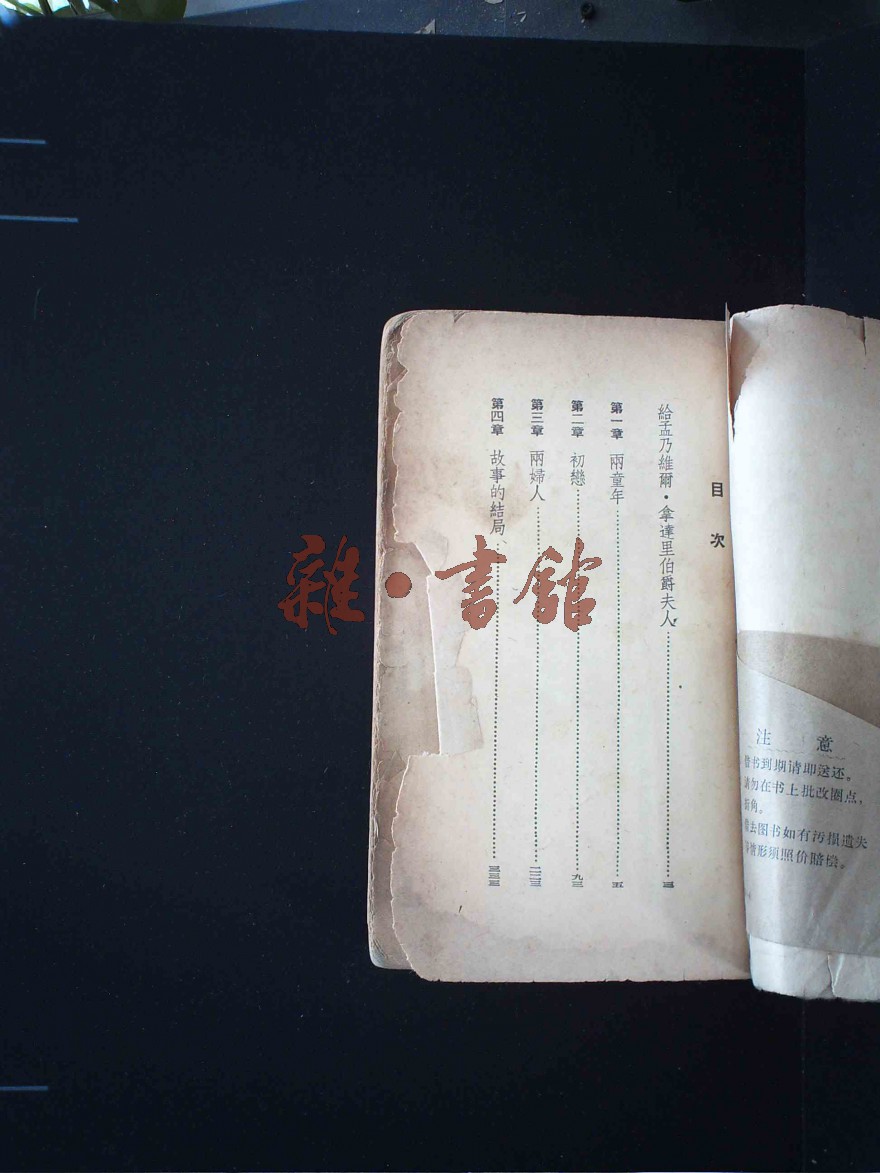 目 次
給孟乃維爾·拿達里伯爵夫人……三
第一章 兩童年……五
第二章 初戀……九三
第三章 兩婦人……二二三
第四章 故事的結局……三三三
注 意
借书到期请即送还。
请勿在书上批改圈点，
折角。
借去图书如有污损遗失
等情形须照价赔偿。
雜·書館